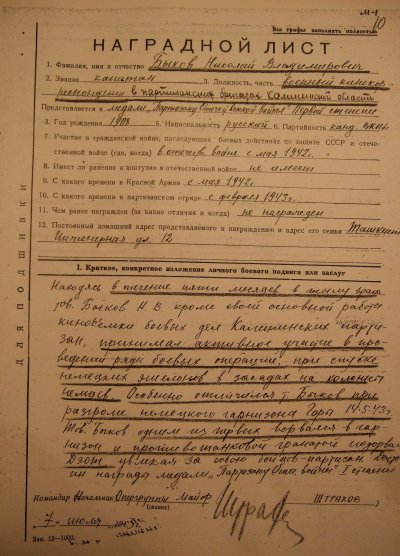 10
Все графы заполнять полностью
НАГРАДНОЙ ЛИСТ
1. Фамилия, имя и отчество Быков Николай Владимирович
2. Звание капитан 3. Должность, часть Военный кинокор-
респондент в партизанских бригадах Калининской области
Представляется к медали „Партизану Отечественной войны" первой степени
3. Год рождения 1908 5. Национальность русский 6. Партийность канд. ВКП(б)
7. Участие в гражданской войне, последующих боевых действиях по защите СССР и отече-
ственной войне (где, когда) в отечеств. войне с мая 1942г.
8. Имеет ли ранения и контузии в отечественной войне не имеет
9. С какого времени в Красной Армии с мая 1942г.
10. С какого времени в партизанском отряде с февраля 1943г.
11. Чем ранее награжден (за какие отличия и когда) не награжден
12. Постоянный домашний адрес представляемого к награждению и адрес его семьи Ташкент
ул. 12
ДЛЯ ПОДШИВКИ
I. Краткое, конкретное изложение личного боевого подвига или заслуг
Находясь в течение пяти месяцев в тылу врага
тов. Быков Н.В. кроме своей основной работы
киносъемки боевых дел Калининских парти-
зан, принимал активное участие в про-
ведении ряда боевых операций, при спуске
немецких эшелонов в засадах на колонны
немцев. Особенно отличился т. Быков при
разгроме немецкого гарнизона Горы 14.5.43г.
Тов. Быков одним из первых ворвался в гар-
низон и противотанковой гранатой подорвал
Дзот, увлекая за собой бойцов-партизан. Досто-
ин награды медали „Партизану Отеч. войны" I степени
Командир Начальник Опергруппы Майор ШТРАХОВ
(звание)
7 июля
Зак. 12—1000.